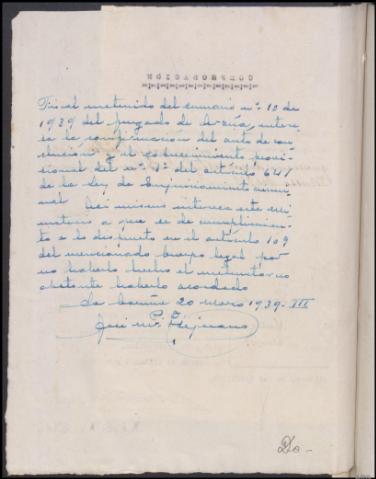 CORPORACION
Fiscal instruido del sumario nº 10 de
1939 del juzgado de intere-
sa la confirmación del auto de con-
clusión y el sobreseimiento provi-
sional del nº 1º del artículo 641
de la Ley de Enjuiciamiento crimi-
nal. Asi mismo interesa este mi-
nisterio a que se de cumplimien-
to a lo dispuesto en el artículo 109
del mencionado cuerpo legal por
no haberlo hecho el instructor no
obstante haberlo acordado
La Coruña 20 Marzo 1939-III
P. D.
José Mª
Dto-